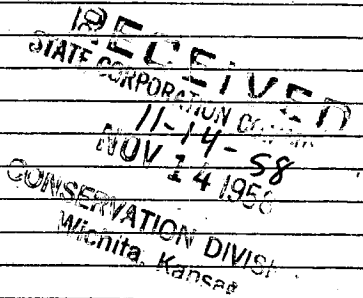 RECEIVED
STATE CORPORATION
11-14-58
NOV 14 195
CONSERVATION DIVIS
Wichita, Kansas